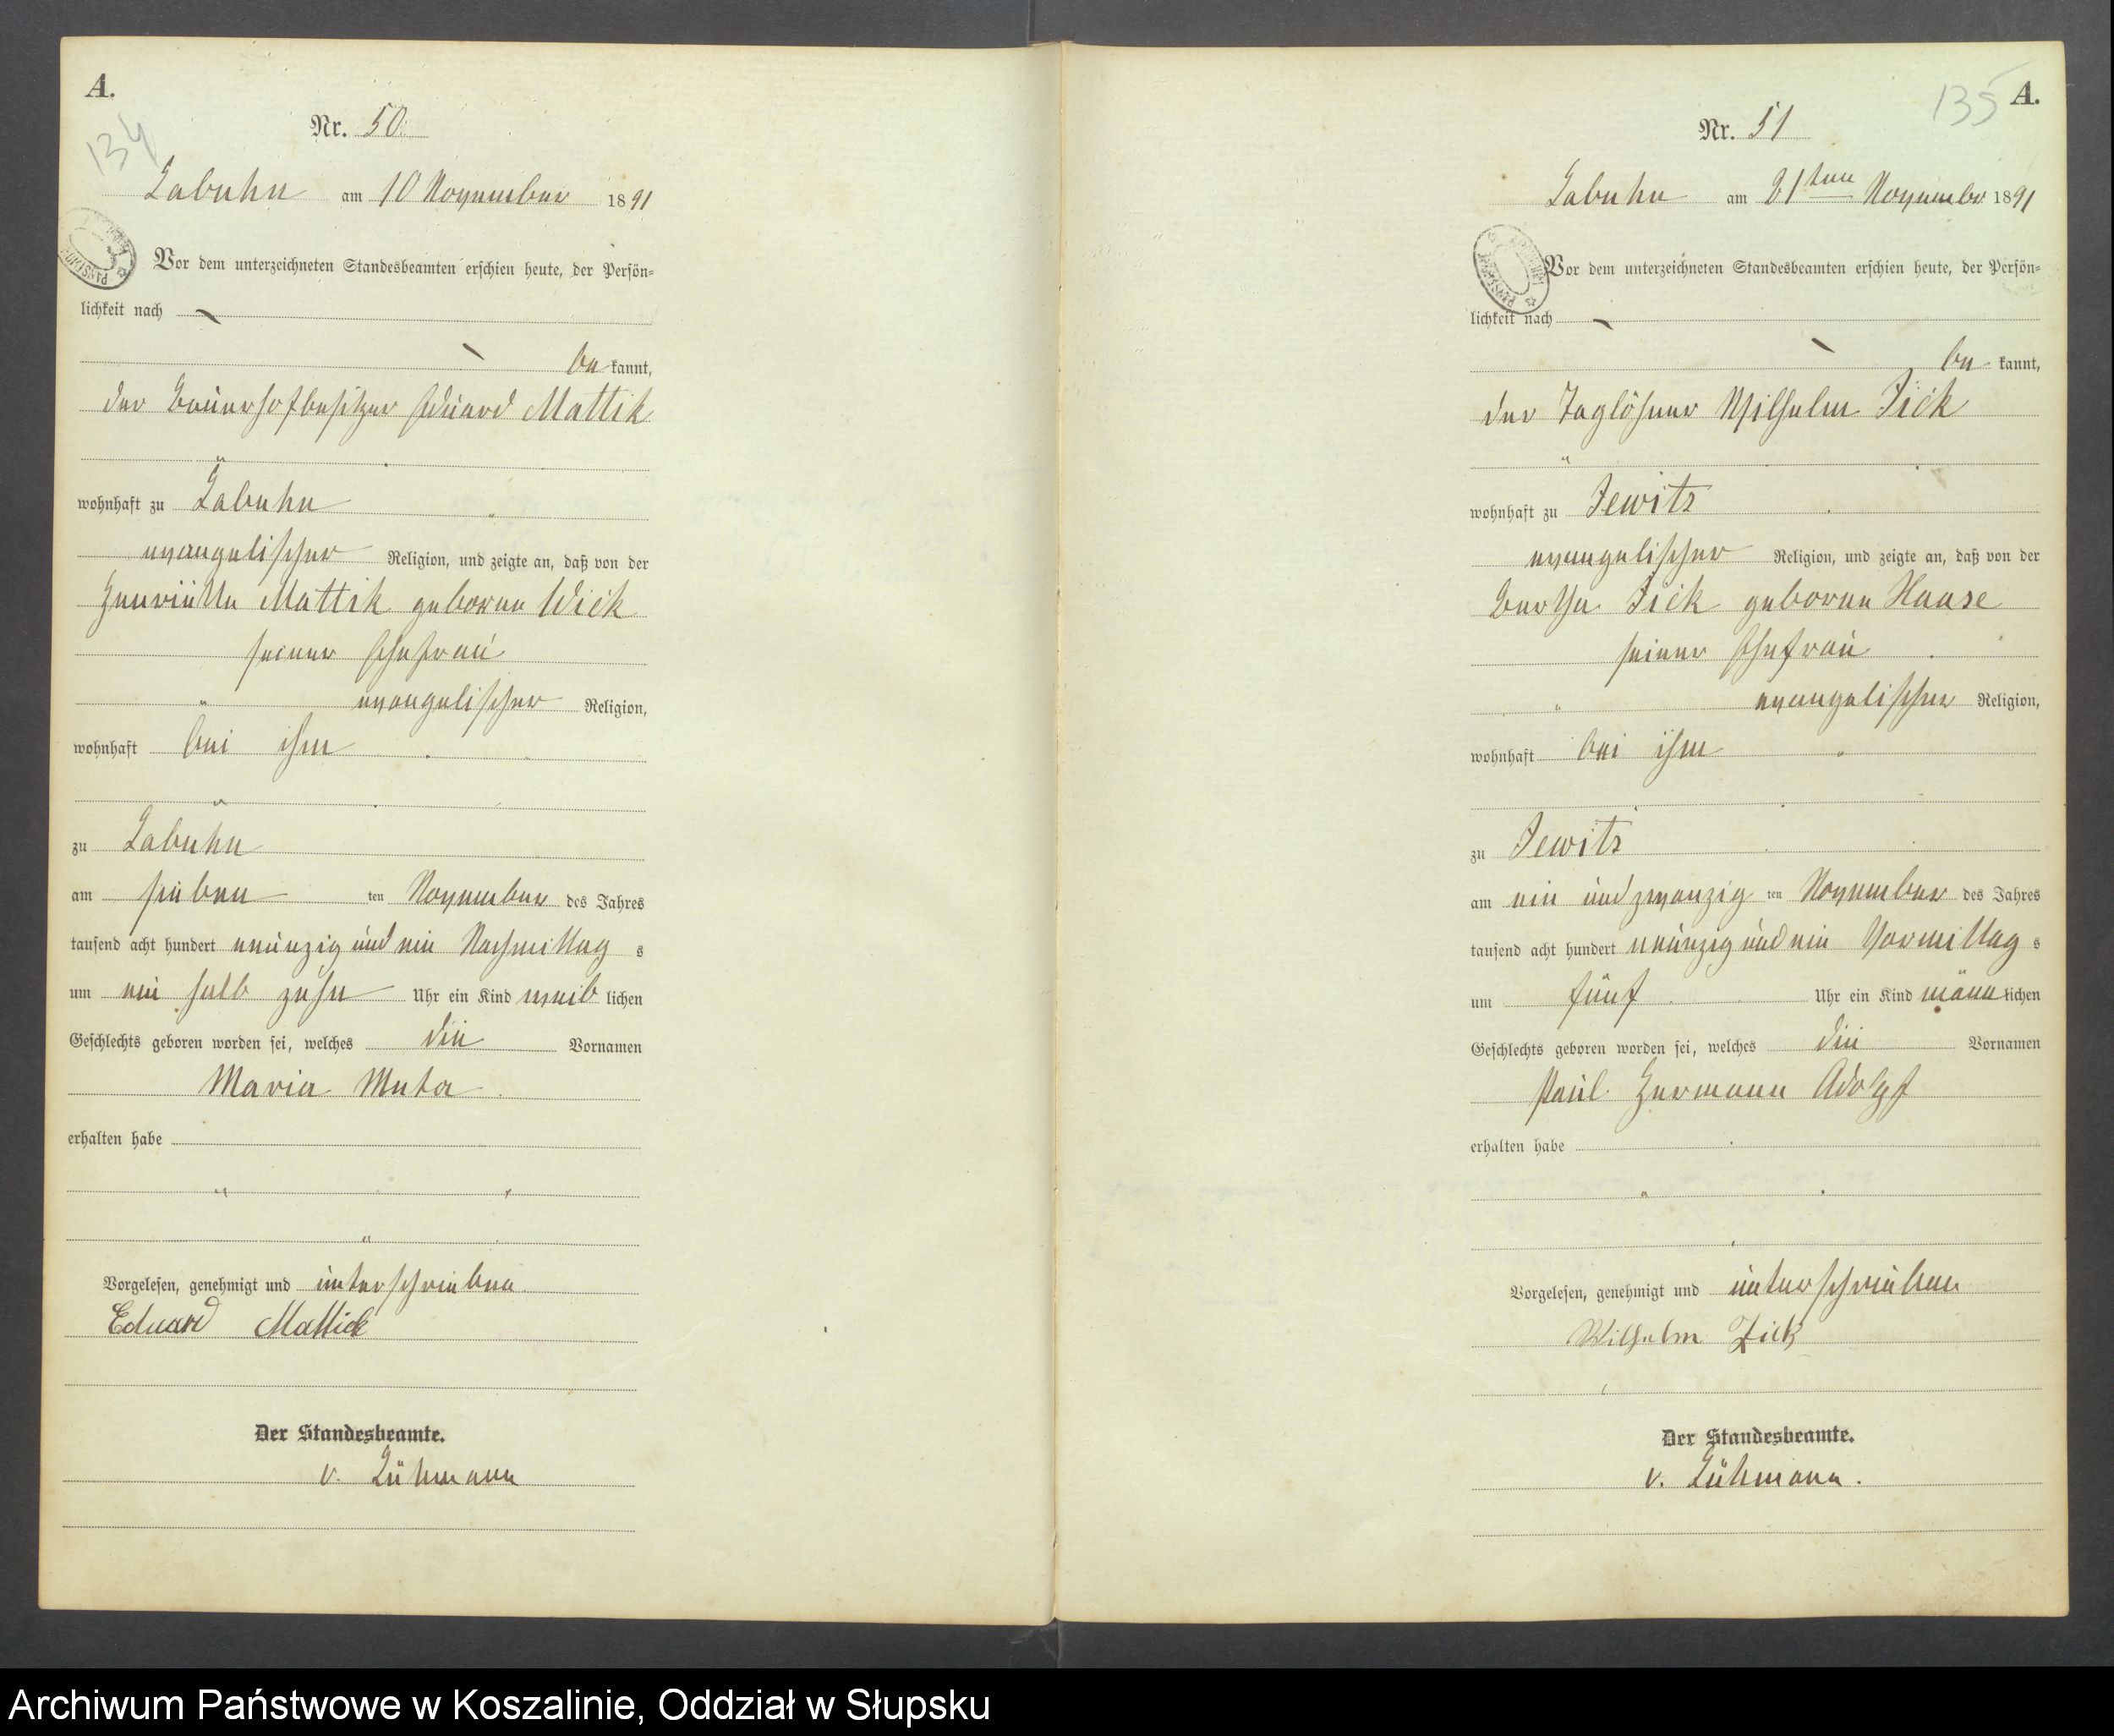 A.
134
Nr. 50.
Labuhn am 10 November 1891
Vor dem unterzeichneten Standesbeamten erschien heute, der Persön=
lichkeit nach
be kannt,
der Bauerhofbesitzer Eduard Mattik
wohnhaft zu Labuhn
evangelischer Religion, und zeigte an, daß von der
Henriette Mattik geboren Wick
seiner Ehefrau
evangelischer Religion,
wohnhaft bei ihm
zu Labuhn
am sieben ten November des Jahres
tausend acht hundert neunzig und ein Nachmittag s
um ein halb zehn Uhr ein Kind weib lichen
Geschlechts geboren worden sei, welches die Vornamen
Maria Meta
erhalten habe
Vorgelesen, genehmigt und unterschrieben
Eduard Mattick
Der Standesbeamte.
v. Lühmann
A.
135
Nr. 51
Labuhn am 21ten November 1891
Vor dem unterzeichneten Standesbeamten erschien heute, der Persön=
lichkeit nach
be kannt,
der Taglöhner Wilhelm Fick
wohnhaft zu Jewitz
evangelischer Religion, und zeigte an, daß von der
Bertha Fick geboren Haase
seiner Ehefrau
evangelischer Religion,
wohnhaft bei ihm
zu Jewitz
am ein und zwanzig ten November des Jahres
tausend acht hundert neunzig und ein Vormittag s
um fünf Uhr ein Kind männ lichen
Geschlechts geboren worden sei, welches die Vornamen
Paul Hermann Adolf
erhalten habe
Vorgelesen, genehmigt und unterschrieben
Wilhelm Fick
Der Standesbeamte.
v. Lühmann.
Archiwum Państwowe w Koszalinie, Oddział w Słupsku